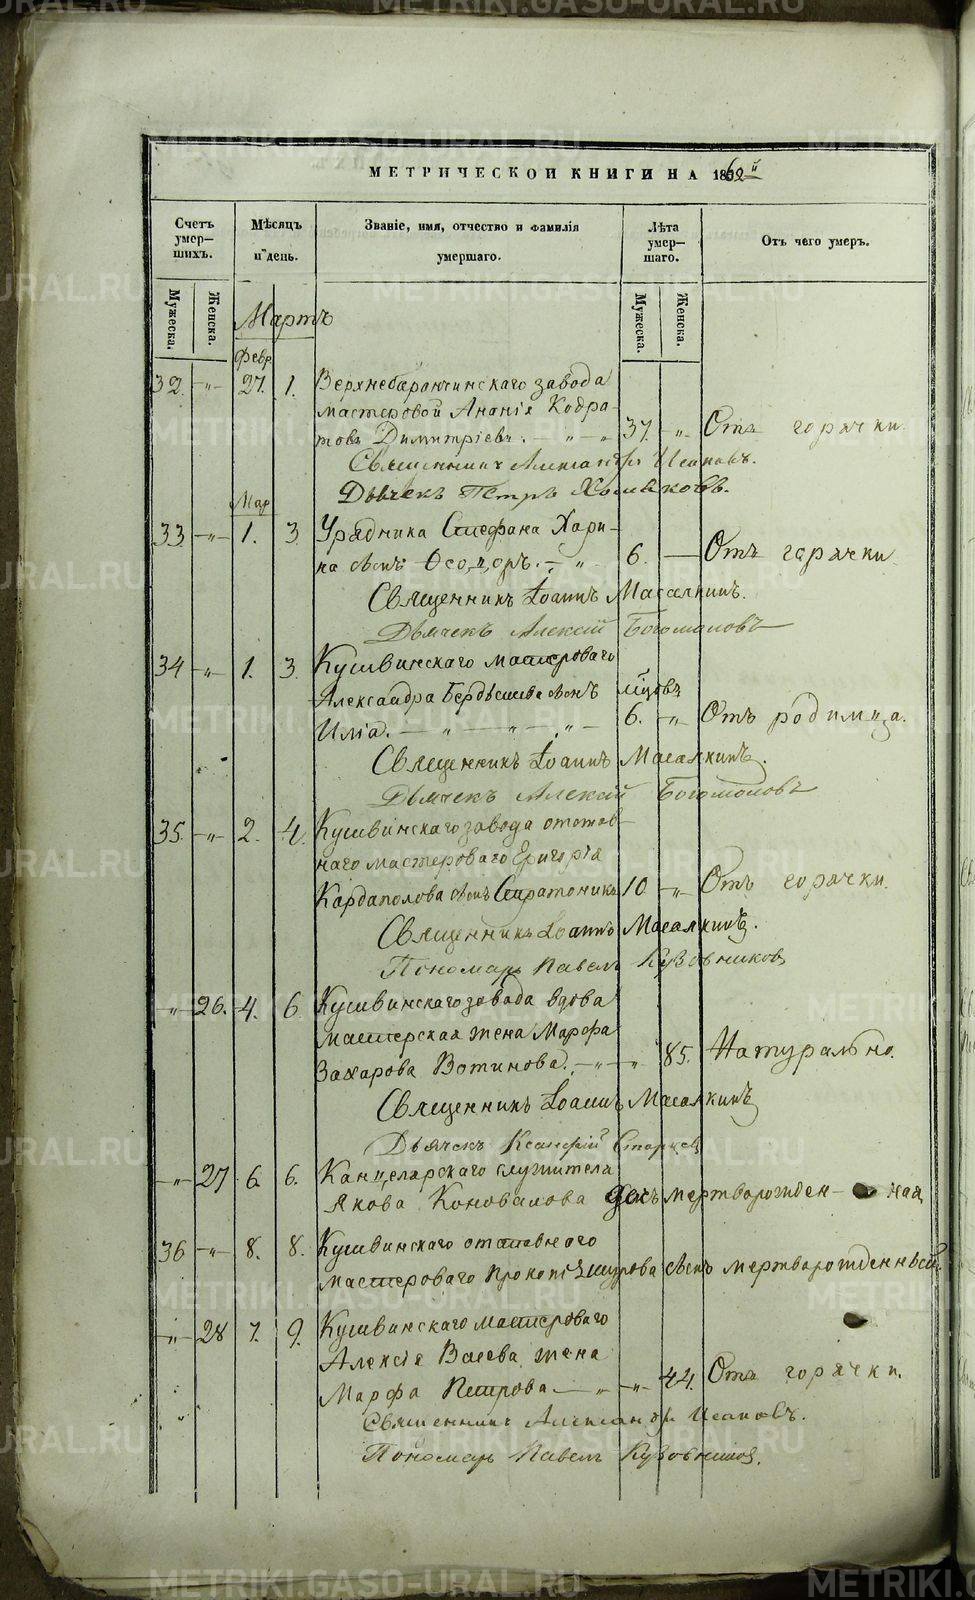 МЕТРИЧЕСКОЙ КНИГИ НА 1862й
Счетъ умер-шихъ.
Мѣсяцъ и день.
Званіе, имя, отчество и фамилія умершаго.
Лѣта умер-шаго.
Отъ чего умеръ.
Мужеска. Женска. Мужеска. Женска.
Мартъ
Февр
32. — „ — 27. 1. Верхнебаранчинскаго завода
мастеровой Ананія Кодра-
товъ Димитріевъ. — „ — „ 37. — „ — Отъ горячки.
Священникъ Александръ Исаковъ.
Дьячекъ Петръ Хомяковъ.
Мар
33 — „ — 1. 3 Урядника Стефана Хари-
на сынъ Ѳеодоръ. — „ 6. — Отъ горячки.
Священникъ Іоаннъ Масалкинъ.
Дьячекъ Алексій Богомоловъ
34 — „ — 1. 3. Кушвинскаго мастероваго
Александра Бердышева сынъ мѣсяцовъ
Илія. — „ — „ — „ — 6. — „ — Отъ родимца.
Священникъ Іоаннъ Масалкинъ.
Дьячекъ Алексій Богомоловъ
35. — „ — 2. 4. Кушвинскаго завода отстав-
наго мастероваго Григорія
Кардаполова сынъ Стратоникъ 10 — „ — Отъ горячки.
Священникъ Іоаннъ Масалкинъ.
Пономарь Павелъ Кузовников
— „ — 26. 4. 6 Кушвинскаго завода вдова
мастерская жена Марфа
Захарова Вотинова. — „ — „ 85. Натурально.
Священникъ Іоаннъ Масалкинъ
Дьячекъ Ксанфій Старцев
— „ — 27 6. 6. Канцелярскаго служителя
Якова Коновалова дочь мертворожден-ная
36 — „ — 8. 8. Кушвинскаго отставнаго
мастероваго Прокопія сынъ мертворожденный.
— „ — 28 7. 9. Кушвинскаго мастероваго
Алексія Васева жена
Марфа Петрова — „ — „ — 44. Отъ горячки.
Священникъ Александръ Исаковъ.
Пономарь Павелъ Кузовников.
METRIKI.GASO-URAL.RU